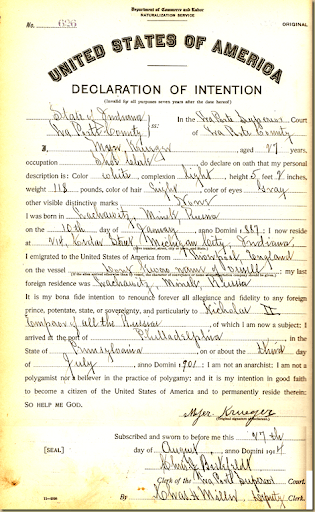 Department of Commerce and Labor
NATURALIZATION SERVICE
No. 626 ORIGINAL
UNITED STATES OF AMERICA
DECLARATION OF INTENTION
(Invalid for all purposes seven years after the date hereof)
State of Indiana ss: In the La Porte Superior Court
La Porte County of La Porte County
I, Myer Krueger, aged 27 years,
occupation Clerk, do declare on oath that my personal
description is: Color white, complexion light, height 5 feet 2 inches,
weight 118 pounds, color of hair light, color of eyes Gray
other visible distinctive marks None
I was born in Minsk, Russia
on the 10th day of January, anno Domini 1887; I now reside
at Michigan City, Indiana.
I emigrated to the United States of America from Liverpool, England
on the vessel Dont know name of vessell; my last
foreign residence was Minsk, Russia
It is my bona fide intention to renounce forever all allegiance and fidelity to any foreign
prince, potentate, state, or sovereignty, and particularly to Nicholas II
Emperor of all the Russias, of which I am now a subject; I
arrived at the port of Philladelphia, in the
State of Pennsylvania, on or about the third day
of July, anno Domini 1901; I am not an anarchist; I am not a
polygamist nor a believer in the practice of polygamy; and it is my intention in good faith
to become a citizen of the United States of America and to permanently reside therein:
SO HELP ME GOD.
Myer Krueger
(Original signature of declarant.)
Subscribed and sworn to before me this 27th
[SEAL] day of August, anno Domini 1914
Clerk of the La Porte Superior Court.
By Chas. H. Miller, Deputy Clerk.